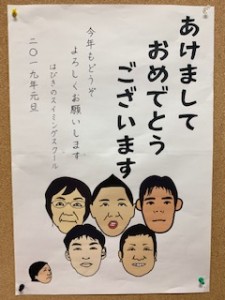 あけまして
おめでとう
ございます
今年もどうぞ
よろしくお願いします
はびきのスイミングスクール
二〇一九年元旦